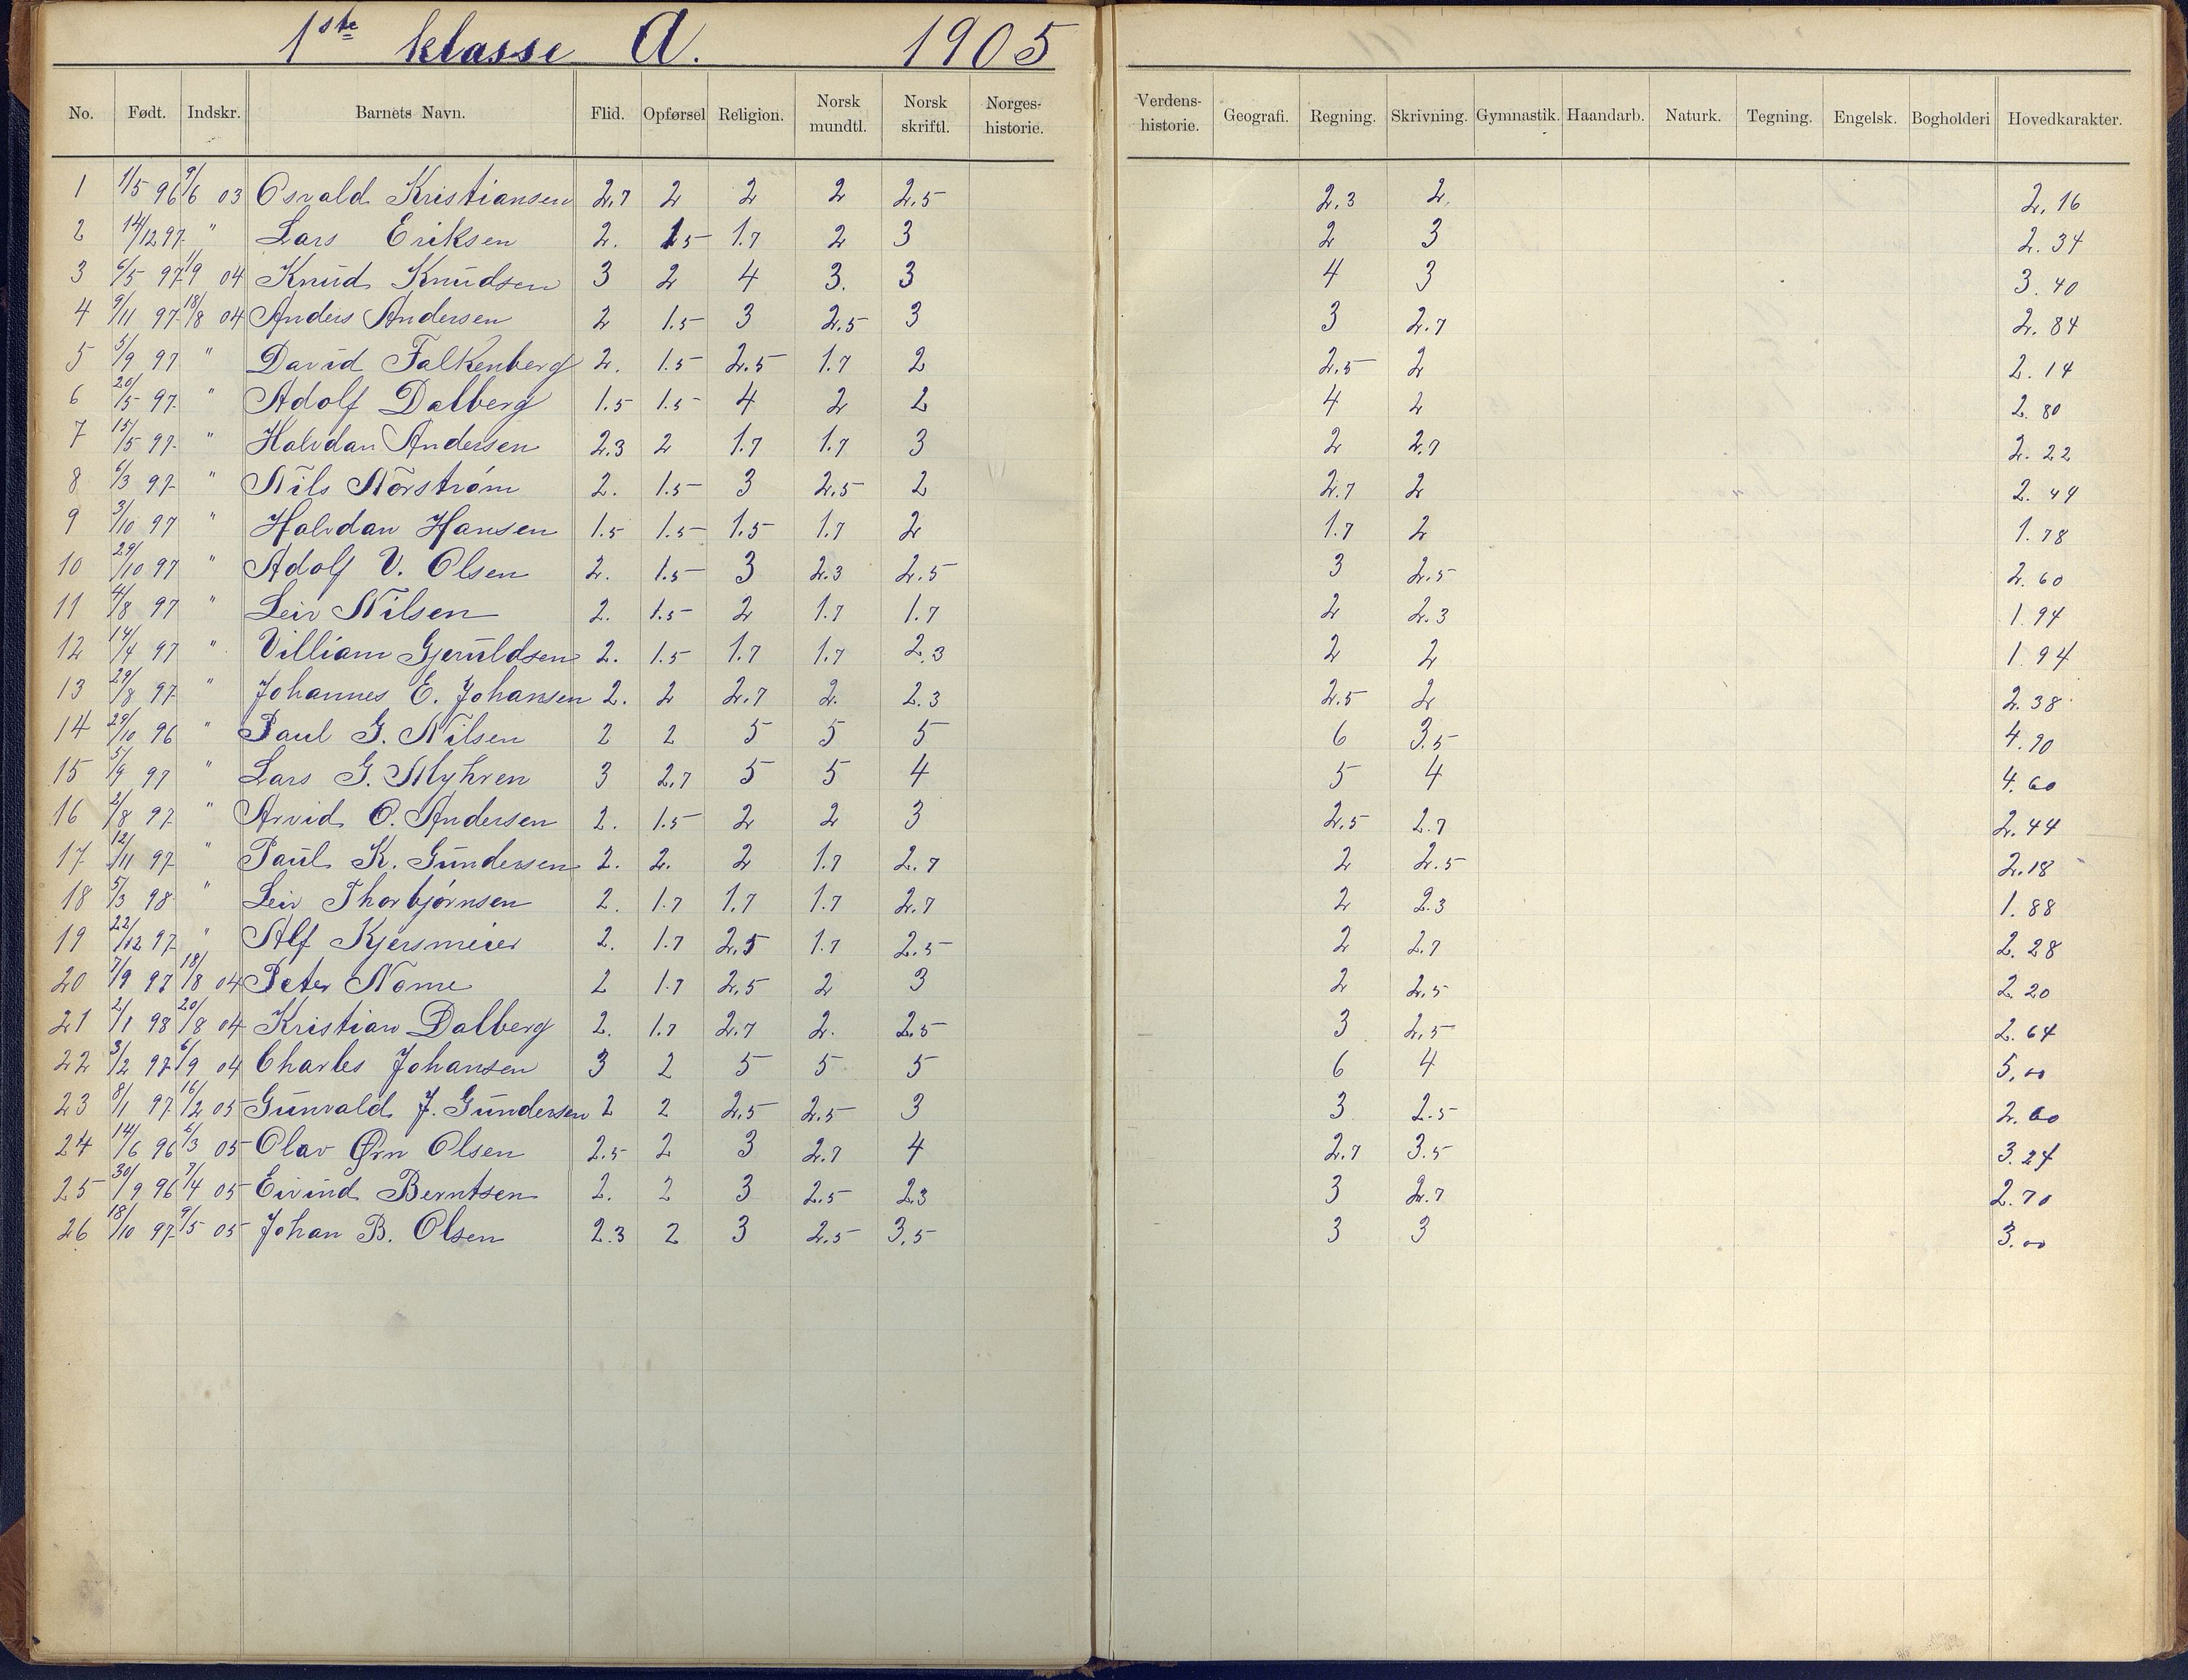 1ste klasse A. 1905
No. Født. Indskr. Barnets Navn. Flid. Opførsel Religion. Norsk mundtl. Norsk skriftl. Norges-historie. Verdens-historie. Geografi. Regning. Skrivning. Gymnastik. Haandarb. Naturk. Tegning. Engelsk. Bogholderi Hovedkarakter.
1 1/5 96 9/6 03 Osvald Kristiansen 2,7 2 2 2 2,5 2.3 2. 2,16
2 14/12 97 " Lars Eriksen 2. 1.5 1.7 2 3 2 3 2.34
3 6/5 97 1/9 04 Knud Knudsen 3 2 4 3. 3 4 3 3.40
4 9/11 97 18/8 04 Anders Andersen 2 1.5 3 2.5 3 3 2.7 2.84
5 5/9 97 " David Falkenberg 2. 1.5 2.5 1.7 2 2.5 2 2.14
6 20/5 97 " Adolf Dalberg 1.5 1.5 4 2 2 4 2 2.80
7 15/5 97 " Halvdan Andersen 2.3 2 1.7 1.7 3 2 2.7 2.22
8 6/3 97 " Nils Norstrøm 2. 1.5 3 2.5 2 2.7 2 2.44
9 3/10 97 " Halvdan Hansen 1.5 1.5 1.5 1.7 2 1.7 2 1.78
10 29/10 97 " Adolf V. Olsen 2. 1.5 3 2.3 2.5 3 2.5 2.60
11 4/8 97 " Leiv Nilsen 2. 1.5 2 1.7 1.7 2 2.3 1.94
12 14/4 97 " Villiam Gjeruldsen 2. 1.5 1.7 1.7 2.3 2 2 1.94
13 29/8 97 " Johannes E. Johansen 2. 2 2.7 2. 2.3 2.5 2 2.38
14 29/10 96 " Paul G. Nilsen 2 2 5 5 5 6 3.5 4.90
15 5/9 97 " Lars G. Myhren 3 2,7 5 5 4 5 4 4.60
16 2/8 97 " Arvid O. Andersen 2. 1.5 2 2 3 2.5 2.7 2.44
17 12/11 97 " Paul K. Gundersen 2. 2. 2 1.7 2.7 2 2.5 2.18
18 5/3 98 " Leiv Thorbjørnsen 2. 1.7 1.7 1.7 2.7 2 2.3 1.88
19 22/12 97 " Alf Kjersmeier 2. 1.7 2.5 1.7 2.5 2 2.7 2.28
20 7/9 97 18/8 04 Peter Nome 2 1.7 2,5 2 3 2 2,5 2.20
21 2/1 98 20/8 04 Kristian Dalberg 2. 1.7 2.7 2. 2.5 3 2,5 2.64
22 3/2 97 6/9 04 Charles Johansen 3 2 5 5 5 6 4 5,00
23 8/1 97 16/2 05 Gunvald J. Gundersen 2 2 2,5 2.5 3 3 2.5 2.60
24 14/6 96 6/3 05 Olav Ørn Olsen 2.5 2 3 2.7 4 2.7 3.5 3.24
25 30/9 96 7/4 05 Eivind Berntsen 2. 2 3 2.5 2.3 3 2.7 2.70
26 18/10 97 9/5 05 Johan B. Olsen 2.3 2 3 2.5 3,5 3 3 3.00